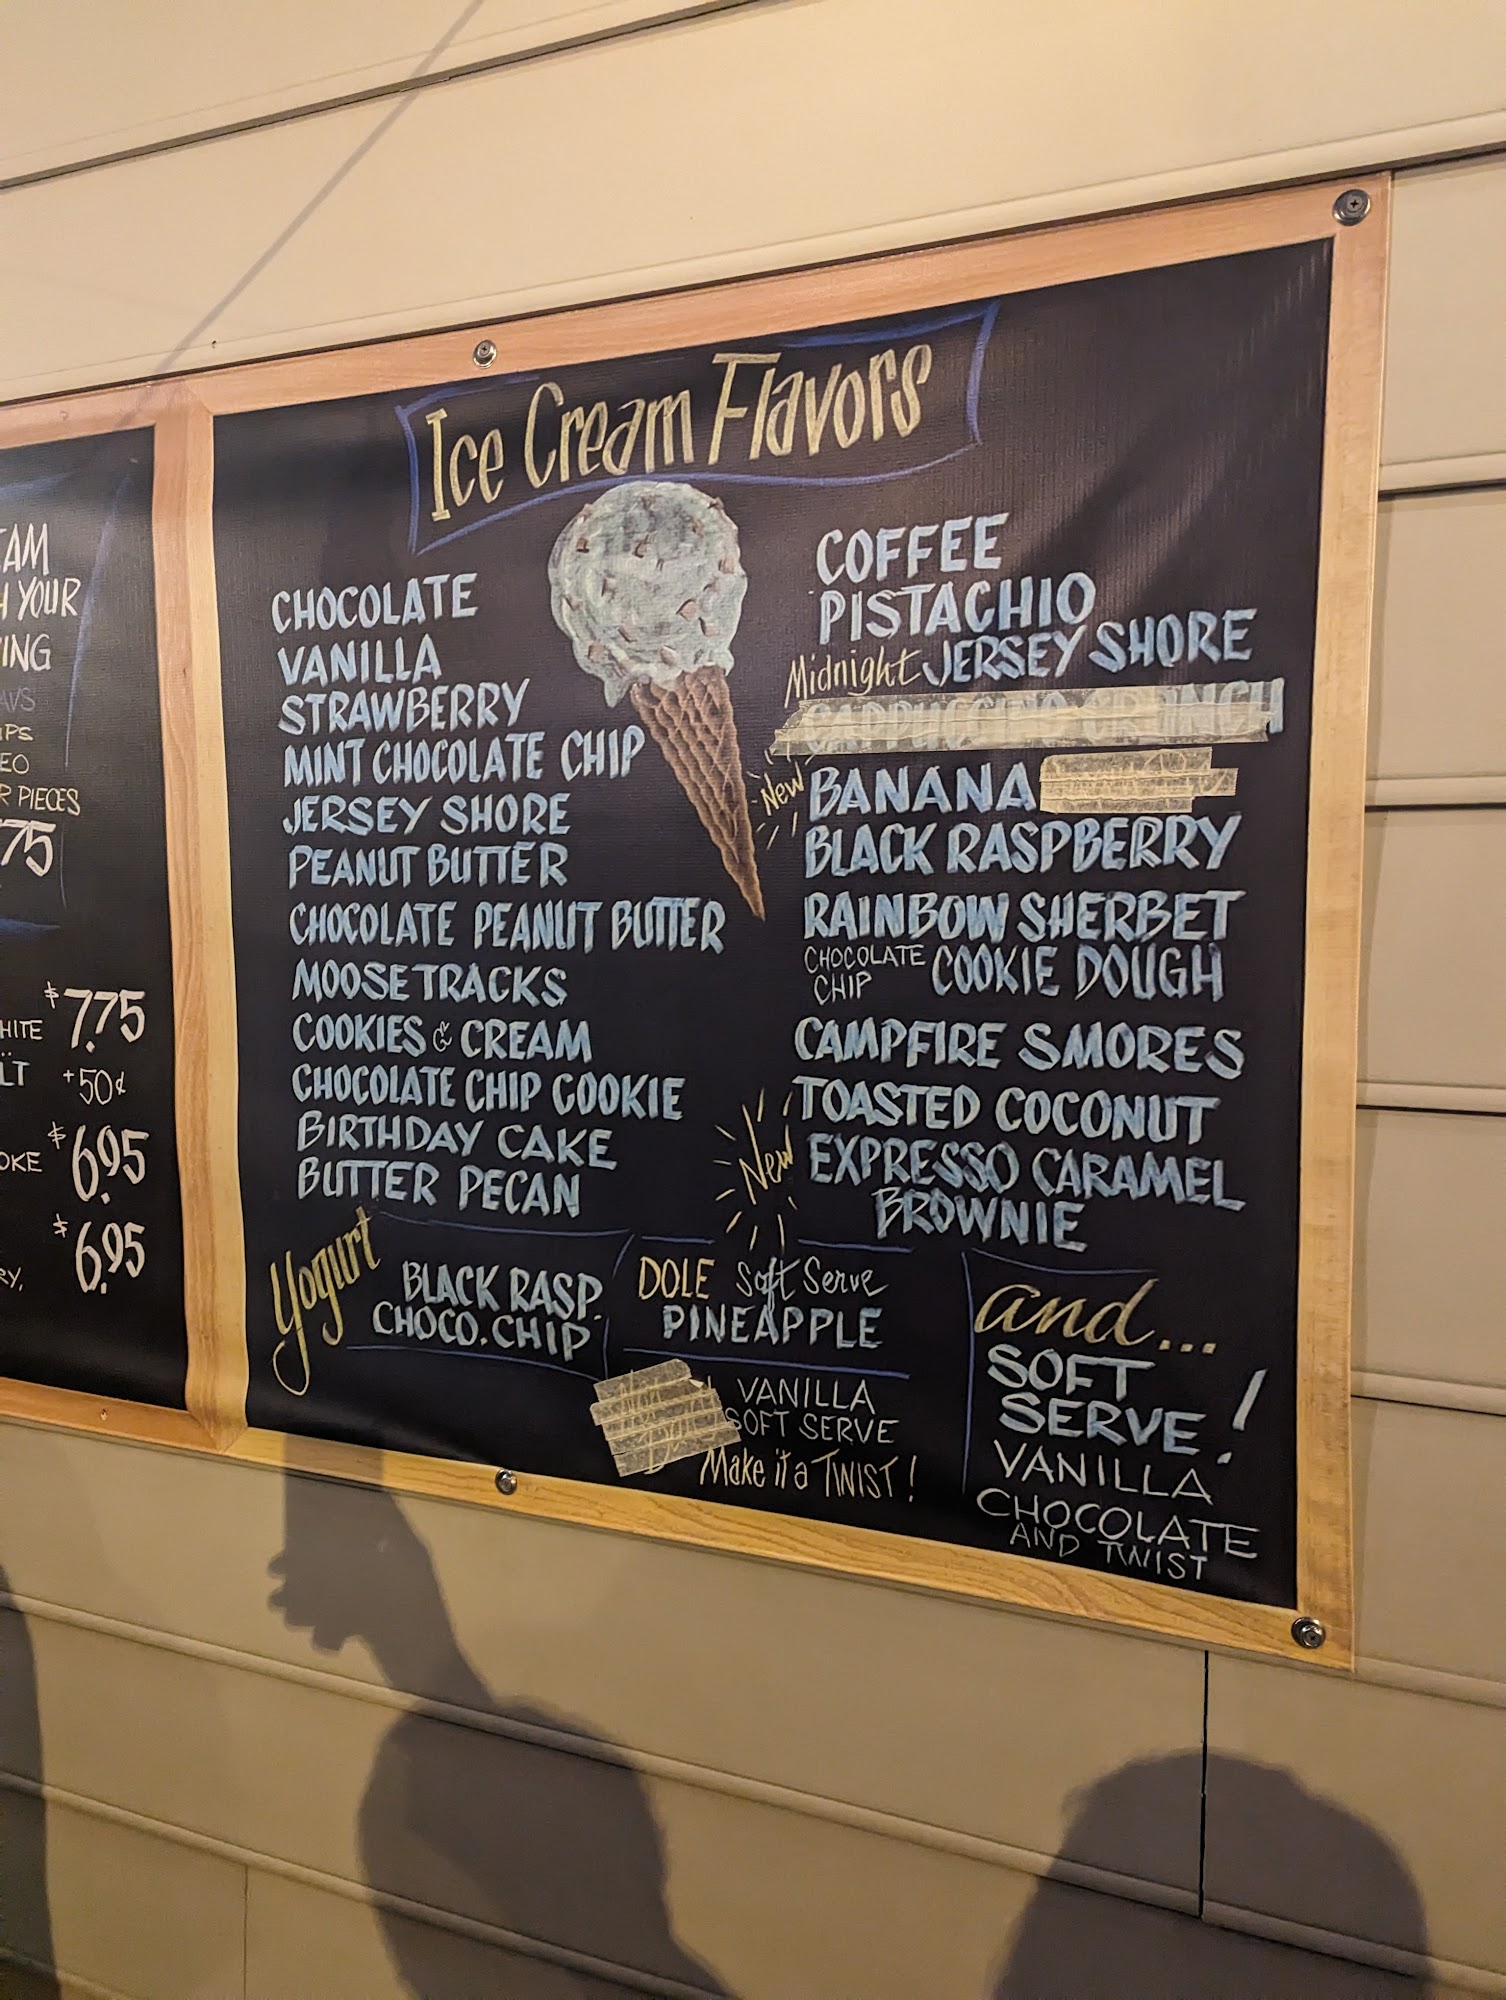 YOUR
PIECES
75
$7.75
+50¢
$6.95
$6.95
Ice Cream Flavors
CHOCOLATE
VANILLA
STRAWBERRY
MINT CHOCOLATE CHIP
JERSEY SHORE
PEANUT BUTTER
CHOCOLATE PEANUT BUTTER
MOOSETRACKS
COOKIES & CREAM
CHOCOLATE CHIP COOKIE
BIRTHDAY CAKE
BUTTER PECAN
COFFEE
PISTACHIO
Midnight JERSEY SHORE
CAPPUCCINO CRUNCH
New BANANA
BLACK RASPBERRY
RAINBOW SHERBET
CHOCOLATE CHIP COOKIE DOUGH
CAMPFIRE SMORES
TOASTED COCONUT
New EXPRESSO CARAMEL
BROWNIE
Yogurt
BLACK RASP.
CHOCO. CHIP
DOLE Soft Serve
PINEAPPLE
VANILLA
SOFT SERVE
Make it a TWIST!
and...
SOFT
SERVE!
VANILLA
CHOCOLATE
AND TWIST